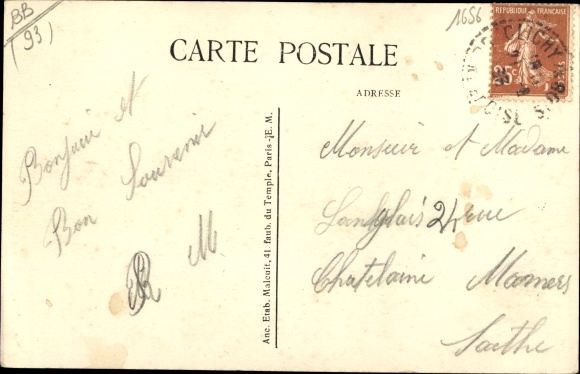 BB
(93)
1656
CARTE POSTALE
ADRESSE
REPUBLIQUE FRANCAISE
25c
Bonjour et
Bon Souvenir
M
Anc. Etab. Malcuit, 41 faub. du Temple, Paris - E. M.
Monsieur et Madame
Langlais 24 rue
Chatelaine Mamers
Sarthe